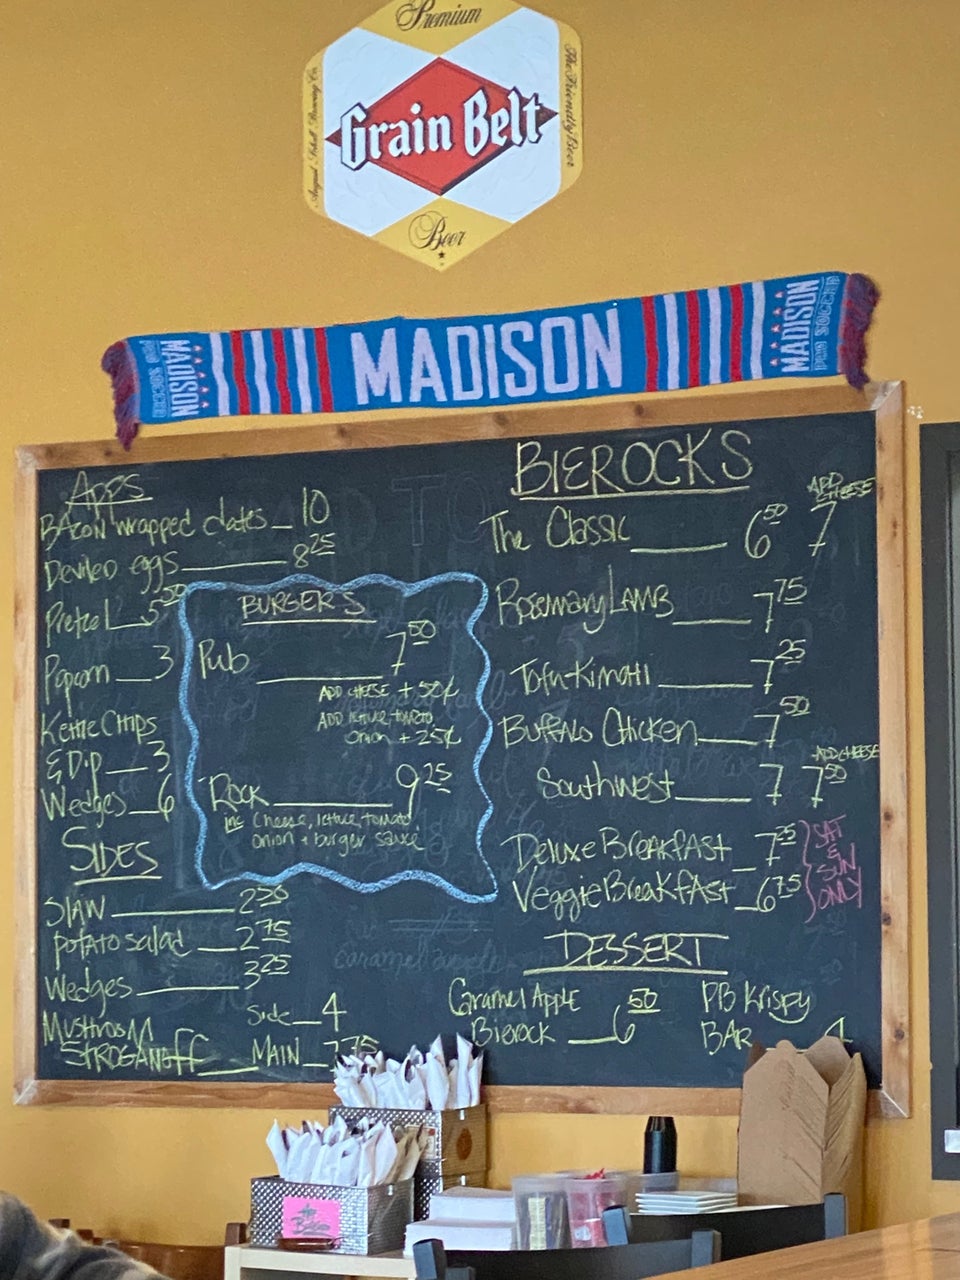 Premium
August Schell Brewing Co.
The Friendly Beer
Grain Belt
Beer
MADISON
PRO SOCCER
MADISON
MADISON
PRO SOCCER
APPS
BACON wrapped dates 10
Deviled eggs 8 25
Pretzel 5 50
Popcorn 3
Kettle Chips
& Dip 3
Wedges 6
SIDES
SLAW 2 50
potato salad 2 75
Wedges 3 25
MUSHROOM Side 4
STROGANOFF MAIN 7 75
BURGERS
Pub 7 50
ADD CHEESE + 50¢
ADD lettuce, tomato,
onion + 25¢
Rock 9 25
inc cheese, lettuce, tomato
onion + burger sauce
BIEROCKS
ADD
CHEESE
The Classic 6 50 7
Rosemary LAMB 7 75
Tofu-Kimchi 7 25
Buffalo Chicken 7 50
ADD CHEESE
Southwest 7 7 50
Deluxe BreakfAst 7 25
Veggie BreakfAst 6 75
SAT
&
SUN
ONLY
caramel apple
DESSERT
Caramel Apple
Bierock 6 50
PB Krispy
BAR 4